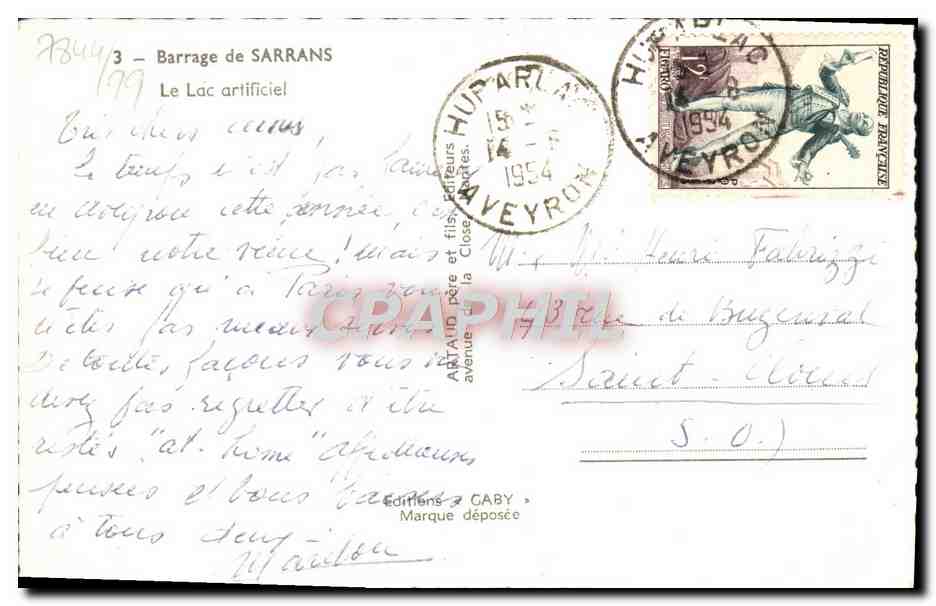 7844/99
3 - Barrage de SARRANS
Le Lac artificiel
Très chers amis,
Le temps n'est pas
en Aveyron cette année, c'est
bien notre veine ! mais
je pense qu'à Paris vous
n'êtes pas mieux
De toutes façons vous ne
devez pas regretter d'être
restés "at-home" Affectueuses
pensées et bons baisers
à tous deux
HUPARLAC
15
14 - 8
1954
AVEYRON
ARTAUD père et fils, Editeurs
avenue de la Close, Nantes.
CPAPHIL
Editions « GABY »
Marque déposée
HUPARLAC
14 - 8
1954
AVEYRON
12F
FIGARO
REPUBLIQUE FRANÇAISE
Mr Me Henri Fabrizzi
43 Rue de Buzenval
Saint-Cloud
S.O.)